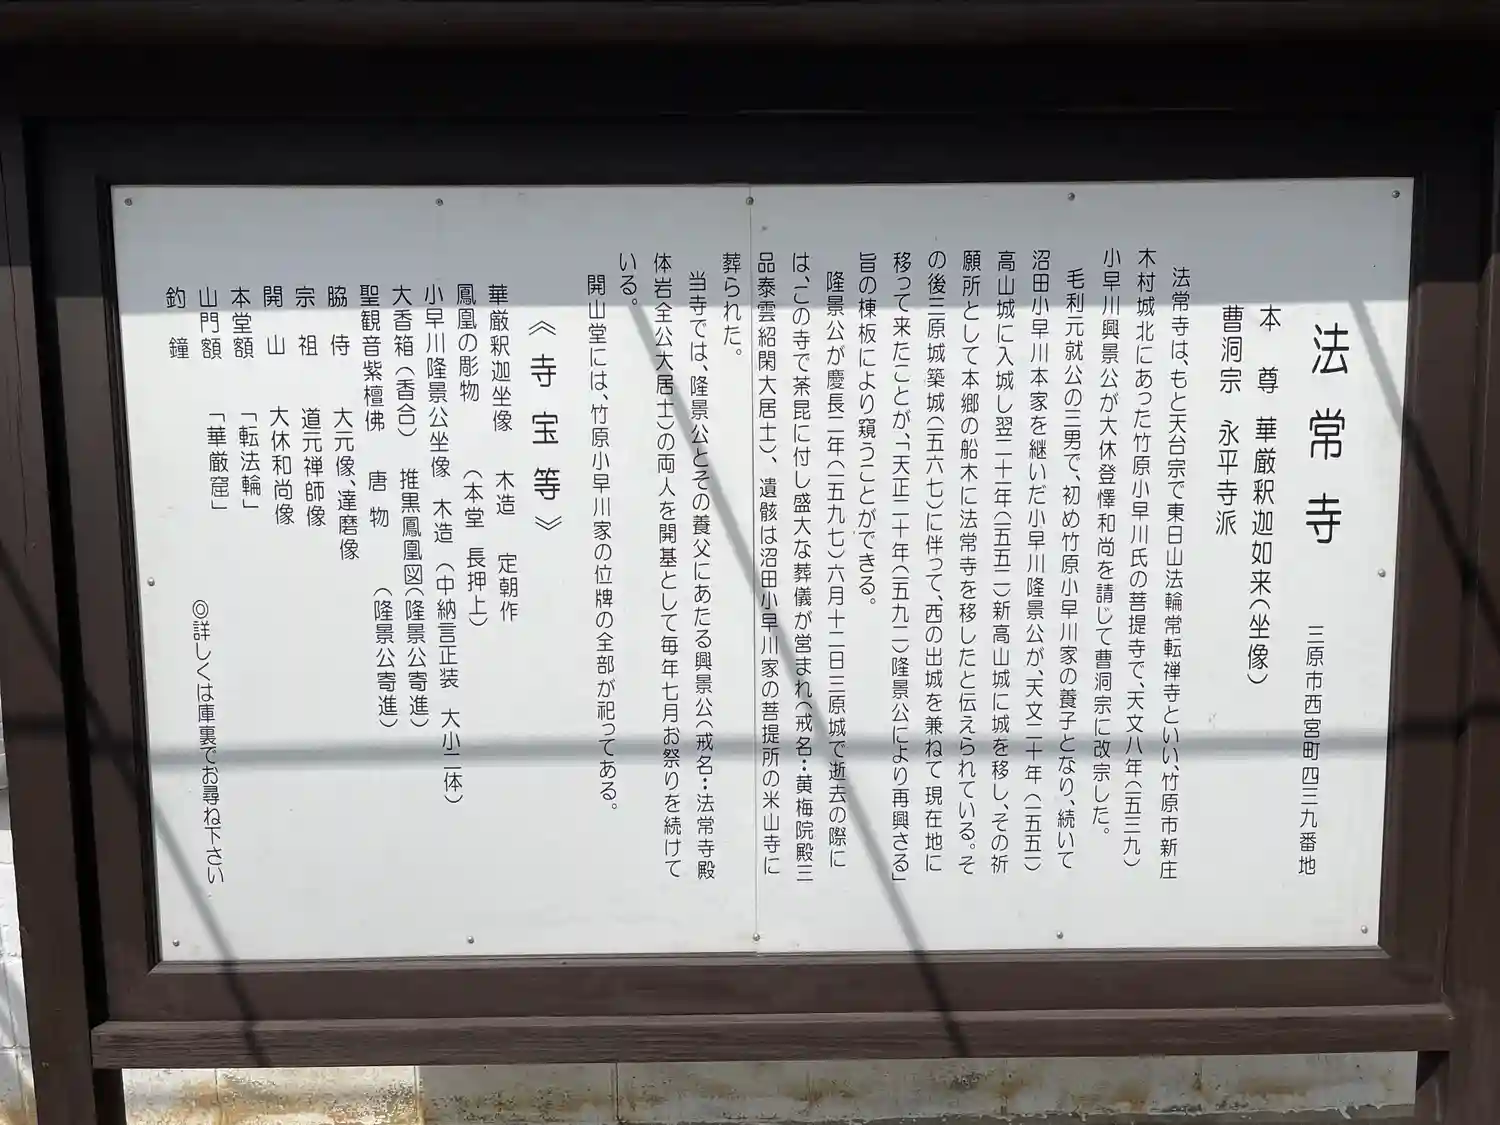 法常寺
三原市西宮町四三九番地
本尊 華厳釈迦如来(坐像)
曹洞宗 永平寺派
法常寺は、もと天台宗で東日山法輪常転禅寺といい、竹原市新庄
木村城北にあった竹原小早川氏の菩提寺で、天文八年(一五三九)
小早川興景公が大休登懌和尚を請じて曹洞宗に改宗した。
毛利元就公の三男で、初め竹原小早川家の養子となり、続いて
沼田小早川本家を継いだ小早川隆景公が、天文二十年(一五五一)
高山城に入城し翌二十一年(一五五二)新高山城に城を移し、その祈
願所として本郷の船木に法常寺を移したと伝えられている。そ
の後三原城築城(一五六七)に伴って、西の出城を兼ねて現在地に
移って来たことが、「天正二十年(一五九二)隆景公により再興さる」
旨の棟板により窺うことができる。
隆景公が慶長二年(一五九七)六月十二日三原城で逝去の際に
は、この寺で荼毘に付し盛大な葬儀が営まれ(戒名…黄梅院殿三
品泰雲紹閑大居士)、遺骸は沼田小早川家の菩提所の米山寺に
葬られた。
当寺では、隆景公とその養父にあたる興景公(戒名…法常寺殿
体岩全公大居士)の両人を開基として毎年七月お祭りを続けて
いる。
開山堂には、竹原小早川家の位牌の全部が祀ってある。
《寺宝等》
華厳釈迦坐像 木造 定朝作
鳳凰の彫物 (本堂 長押上)
小早川隆景公坐像 木造 (中納言正装 大小二体)
大香箱(香合) 推黒鳳凰図(隆景公寄進)
聖観音紫檀佛 唐物 (隆景公寄進)
脇侍 大元像、達磨像
宗祖 道元禅師像
開山 大休和尚像
本堂額 「転法輪」
山門額 「華厳窟」
釣鐘
◎詳しくは庫裏でお尋ね下さい